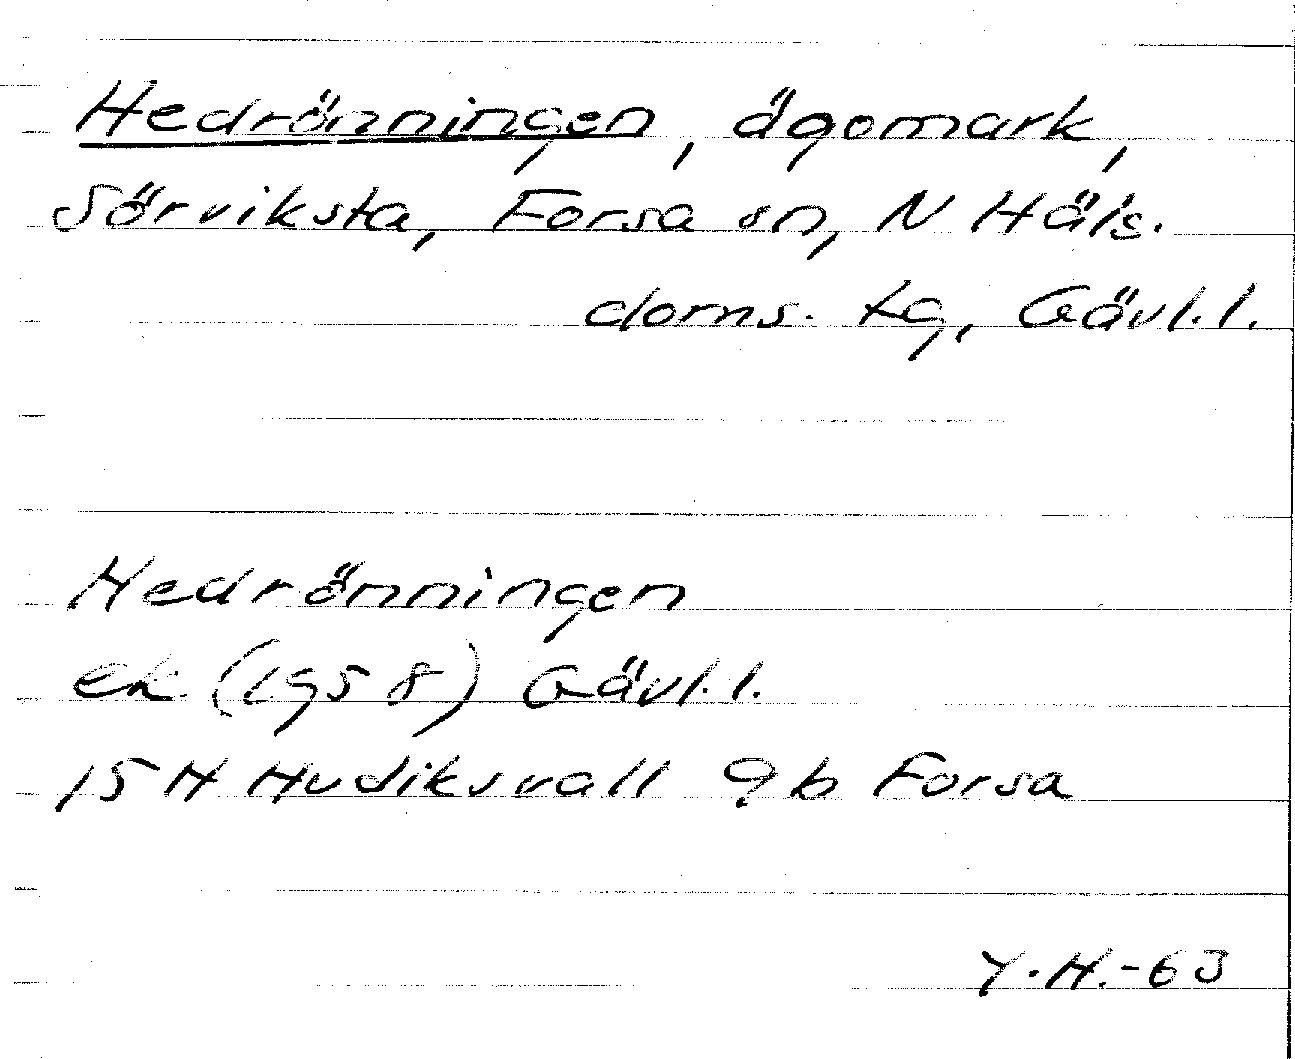 Hedrönningen, ägomark,
Sörviksta, Forsa sn, N Häls.
doms. tg, Gävl. l.
Hedrönningen
ek (1958) Gävl. l.
15 H Hudiksvall 9b Forsa
Y.H.-63